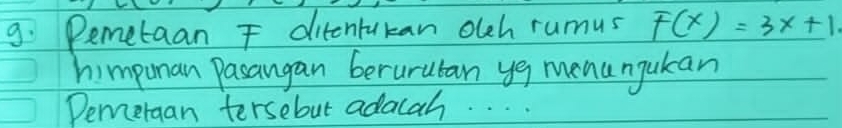 9. Pemetaan F ditentukan oleh rumus F(x) = 3x + 1.
himpunan Pasangan berurutan yg menunjukan
Pemetaan tersebut adalah ....